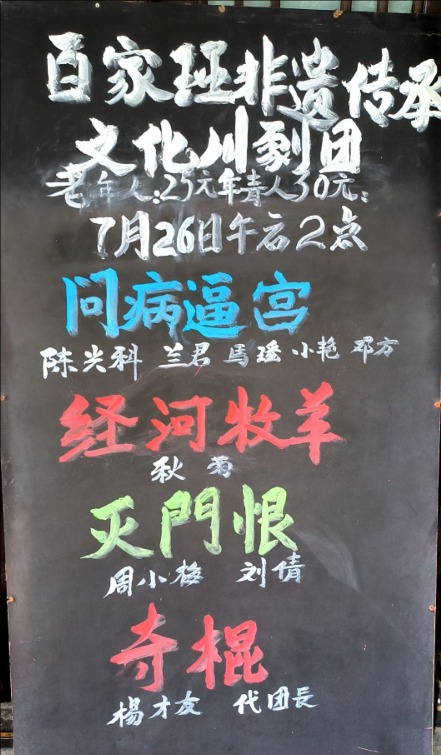 百家班非遗传承
文化川剧团
老年人:25元年青人30元:
7月26日午后2点
问病逼宫
陈兴科 兰君 馬瑶 小艳 邓方
经河牧羊
秋菊
灭門恨
周小梅 刘倩
寺棍
楊才友 代团長